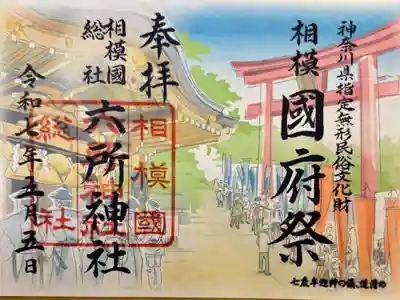 神奈川県指定無形民俗文化財
相模 國府祭
奉拝
相模國
総社
六所神社
令和七年五月五日
相模國
総社
七歳年迎神の儀、道清め